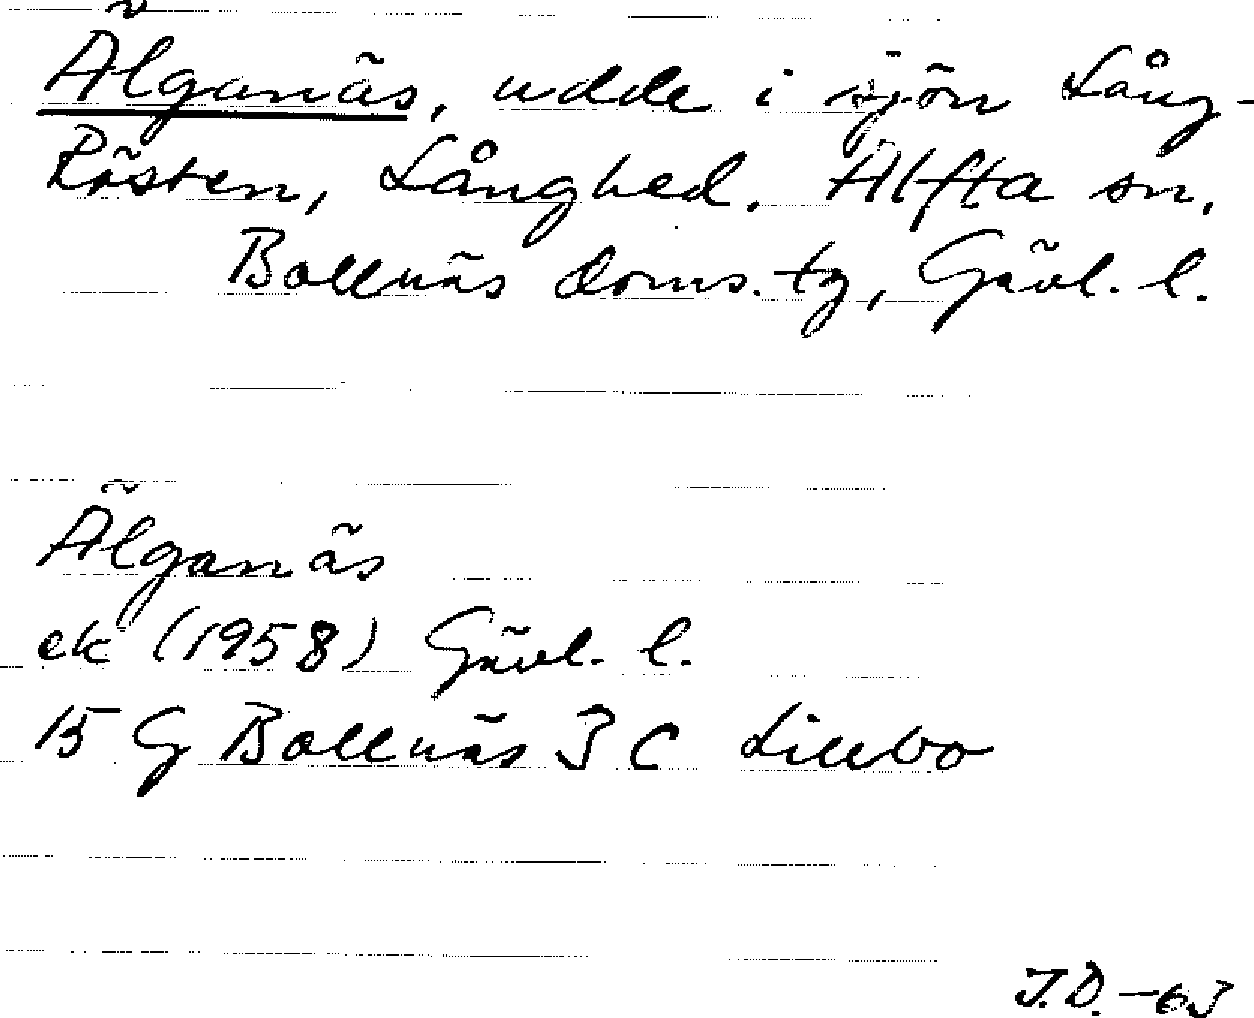 Älganäs, udde i sjön Lång-
Rösten, Långhed. Alfta sn.
Bollnäs doms. tg, Gävl. l.
Älganäs
ek (1958) Gävl. l.
15 G Bollnäs 3 C Lillbo
J.D. -63